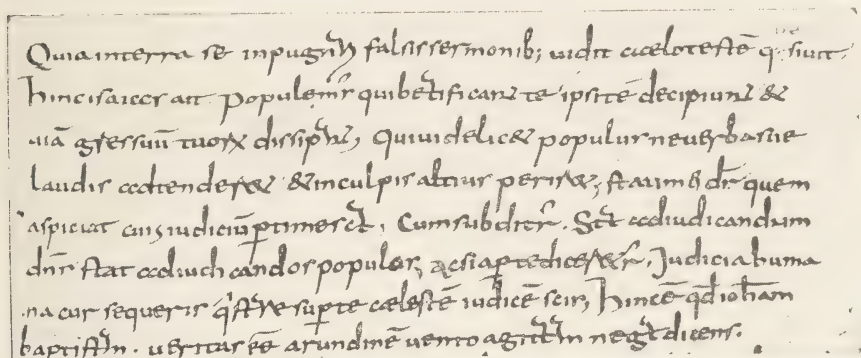 Quia interra se inpugnari falsis sermonib; uidit a caelo testē q. siuit.
hinc isaias ait Popule mr qui beatificant te ipsi te decipiunt &
uiā gressuū tuorū dissipant, Qui uidelic& populus ne uerba suae
laudis adtender& & in culpis altius perir&, statim & dr quem
aspiciat cuius iudiciū ptimescat, Cum subditr. Stat ad iudicandum
dns stat ad iudicandos populos, ac si apte diceretr. Iudicia huma
na cur sequeris q stare supte caelestē iudicē scis, hinc ē qd iohannam
baptistam. ueritas eē arundinē uento agitatam negat dicens.